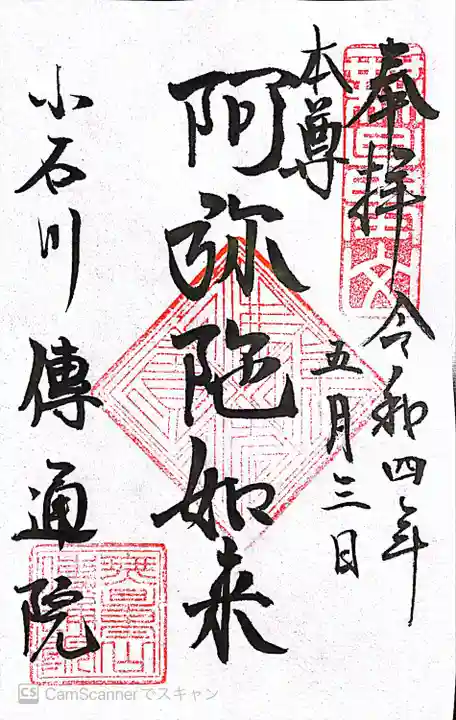 奉拝 令和四年
五月三日
本尊
阿弥陀如来
小石川 傳通院
CS CamScannerでスキャン